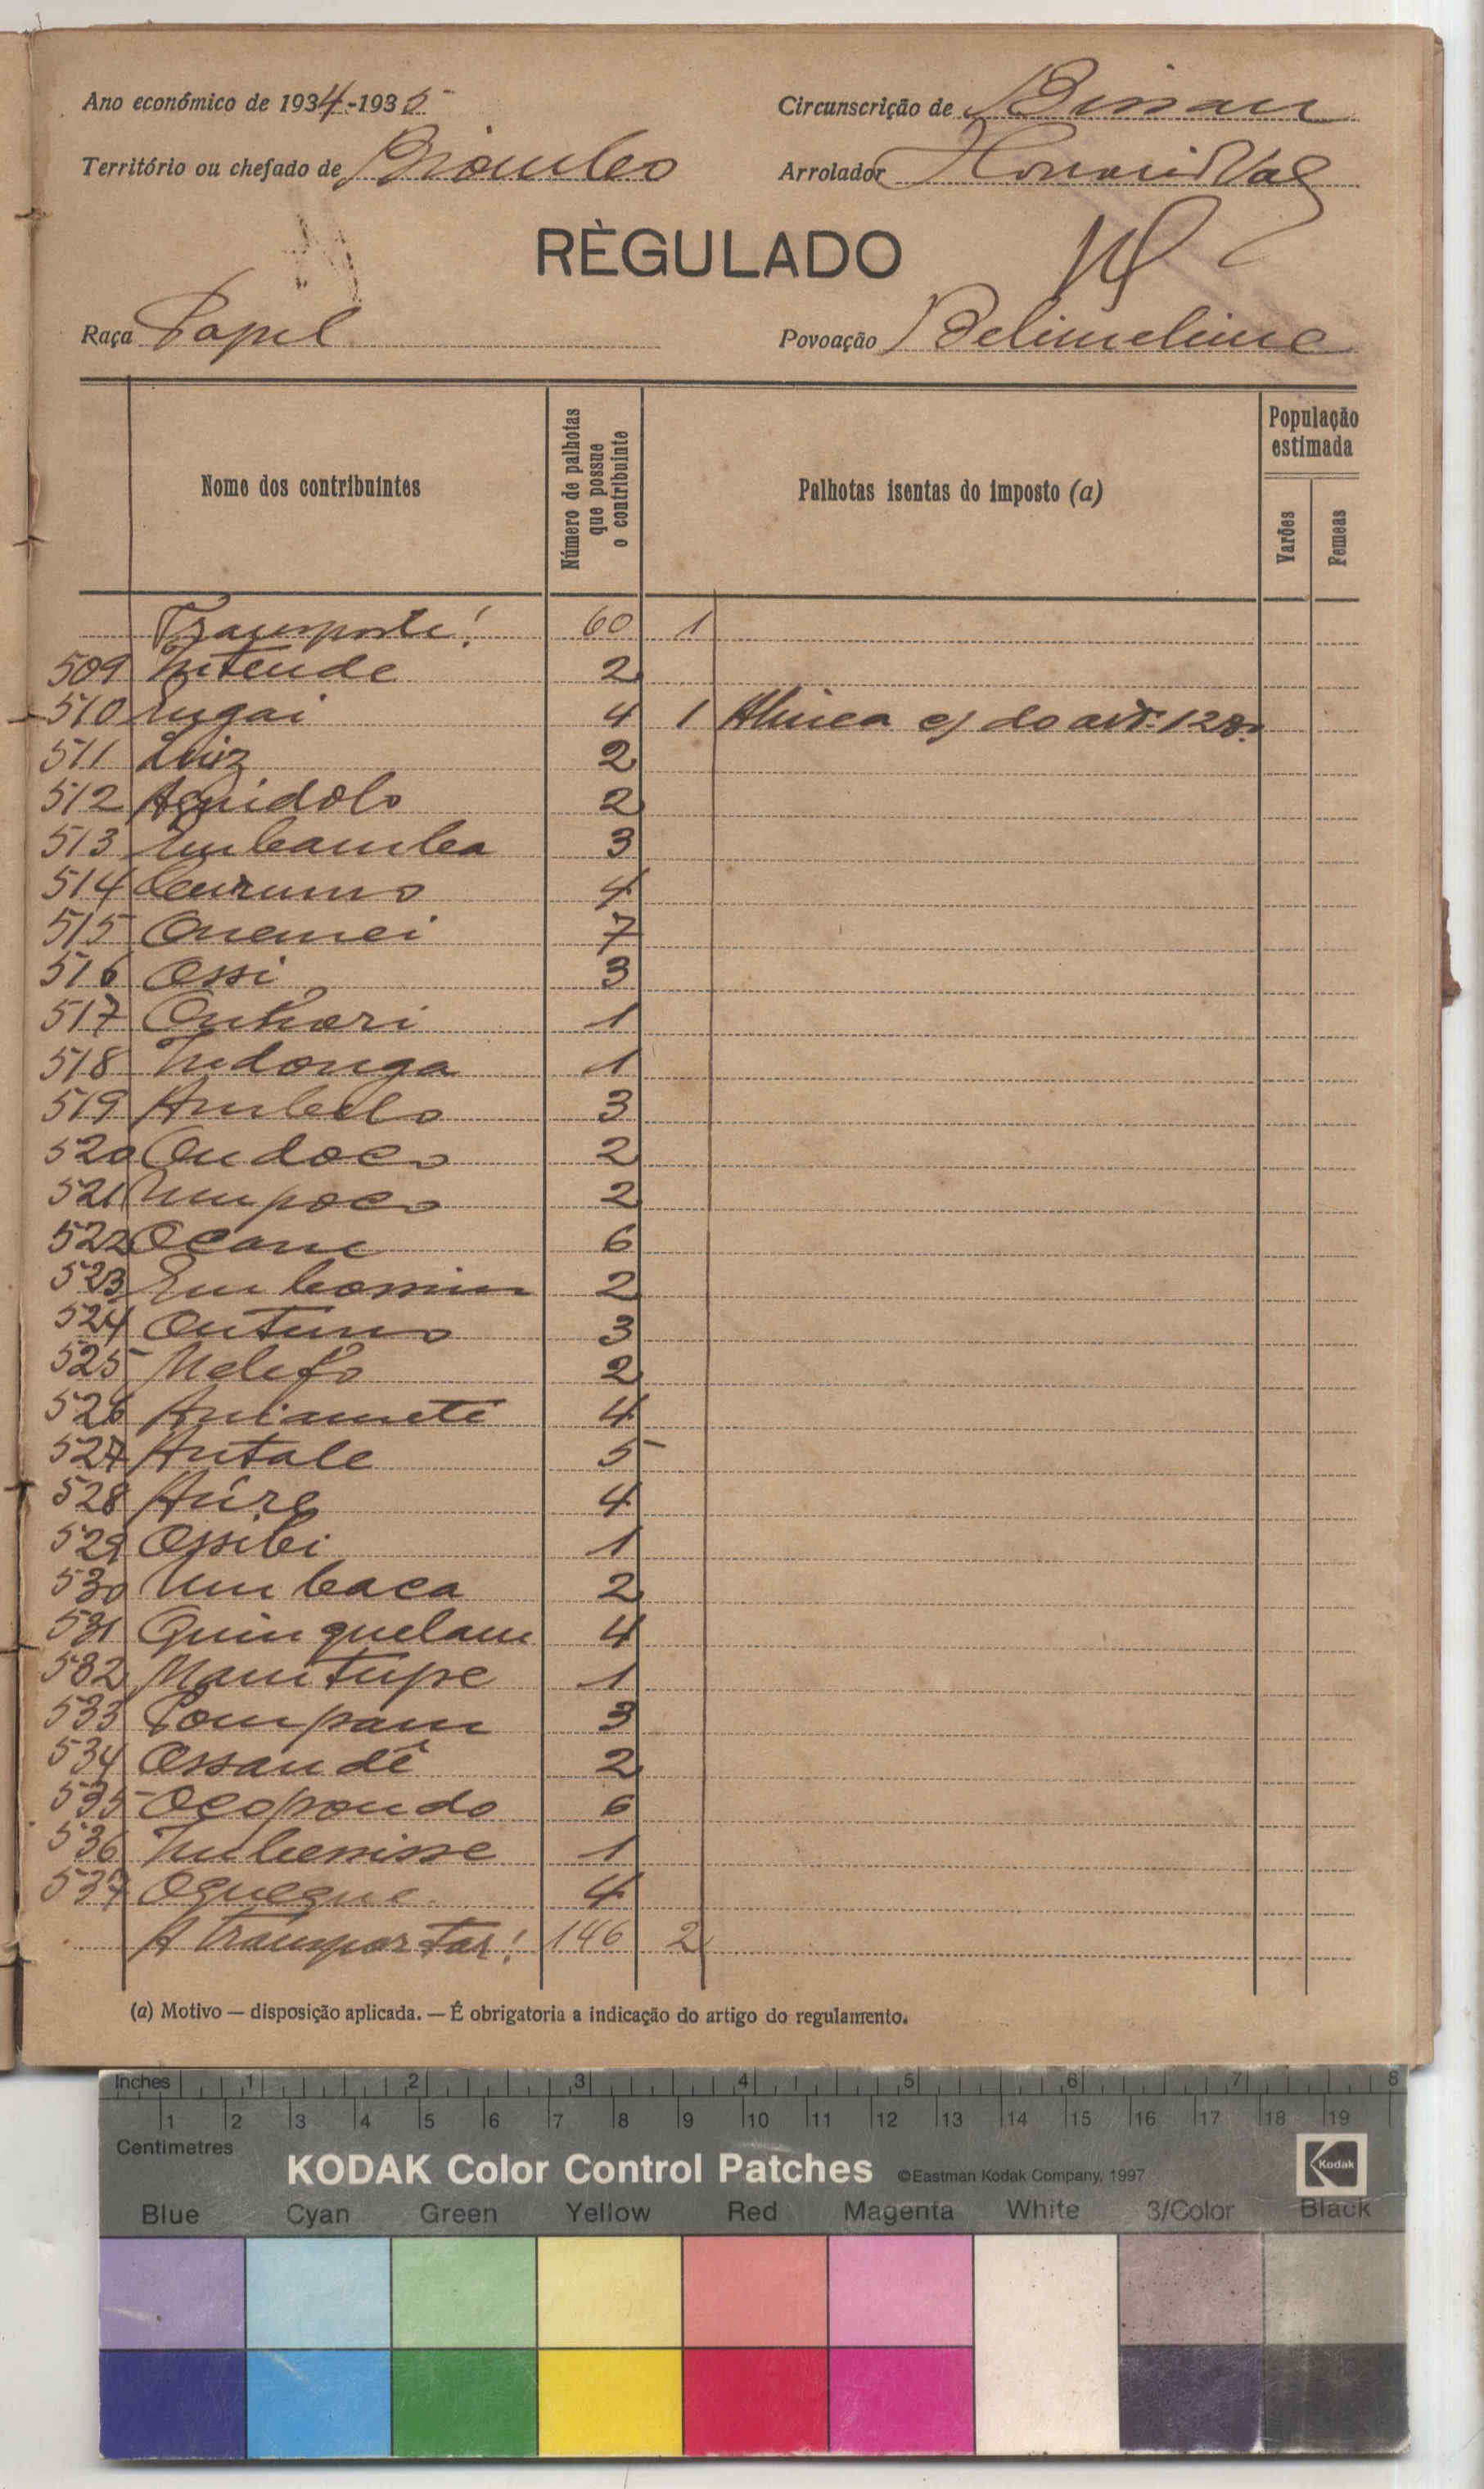 Ano económico de 1934-1935 Circunscrição de Bissau
Território ou chefado de Biombo Arrolador
RÈGULADO
Raça Papel Povoação Belimelime
Nome dos contribuintes
Número de palhotas que possue o contribuinte
Palhotas isentas do imposto (a)
População estimada
Varões
Femeas
Transporte! 60 1
509 Intende 2
510 Engai 4 1 Alinea c) do artº. 128º.
511 Luiz 2
512 Aguidolo 2
513 Embamba 3
514 4
515 Onemei 7
516 Ossi 3
517 Onhori 1
518 Indonga 1
519 Ambelo 3
520 Ondoco 2
521 Umpoco 2
522 Ocame 6
523 2
524 Ontumo 3
525 2
526 4
527 Antale 5
528 4
529 Ossibi 1
530 Umbaca 2
531 Quinquelam 4
532 Mamtupe 1
533 Pompam 3
534 Ossandê 2
535 Ocopondo 6
536 1
537 Oqueque 4
A transportar! 146 2
(a) Motivo — disposição aplicada. — É obrigatoria a indicação do artigo do regulamento.
Inches 1 2 3 4 5 6 7 8
1 2 3 4 5 6 7 8 9 10 11 12 13 14 15 16 17 18 19
Centimetres
KODAK Color Control Patches ©Eastman Kodak Company, 1997 Kodak
Blue Cyan Green Yellow Red Magenta White 3/Color Black